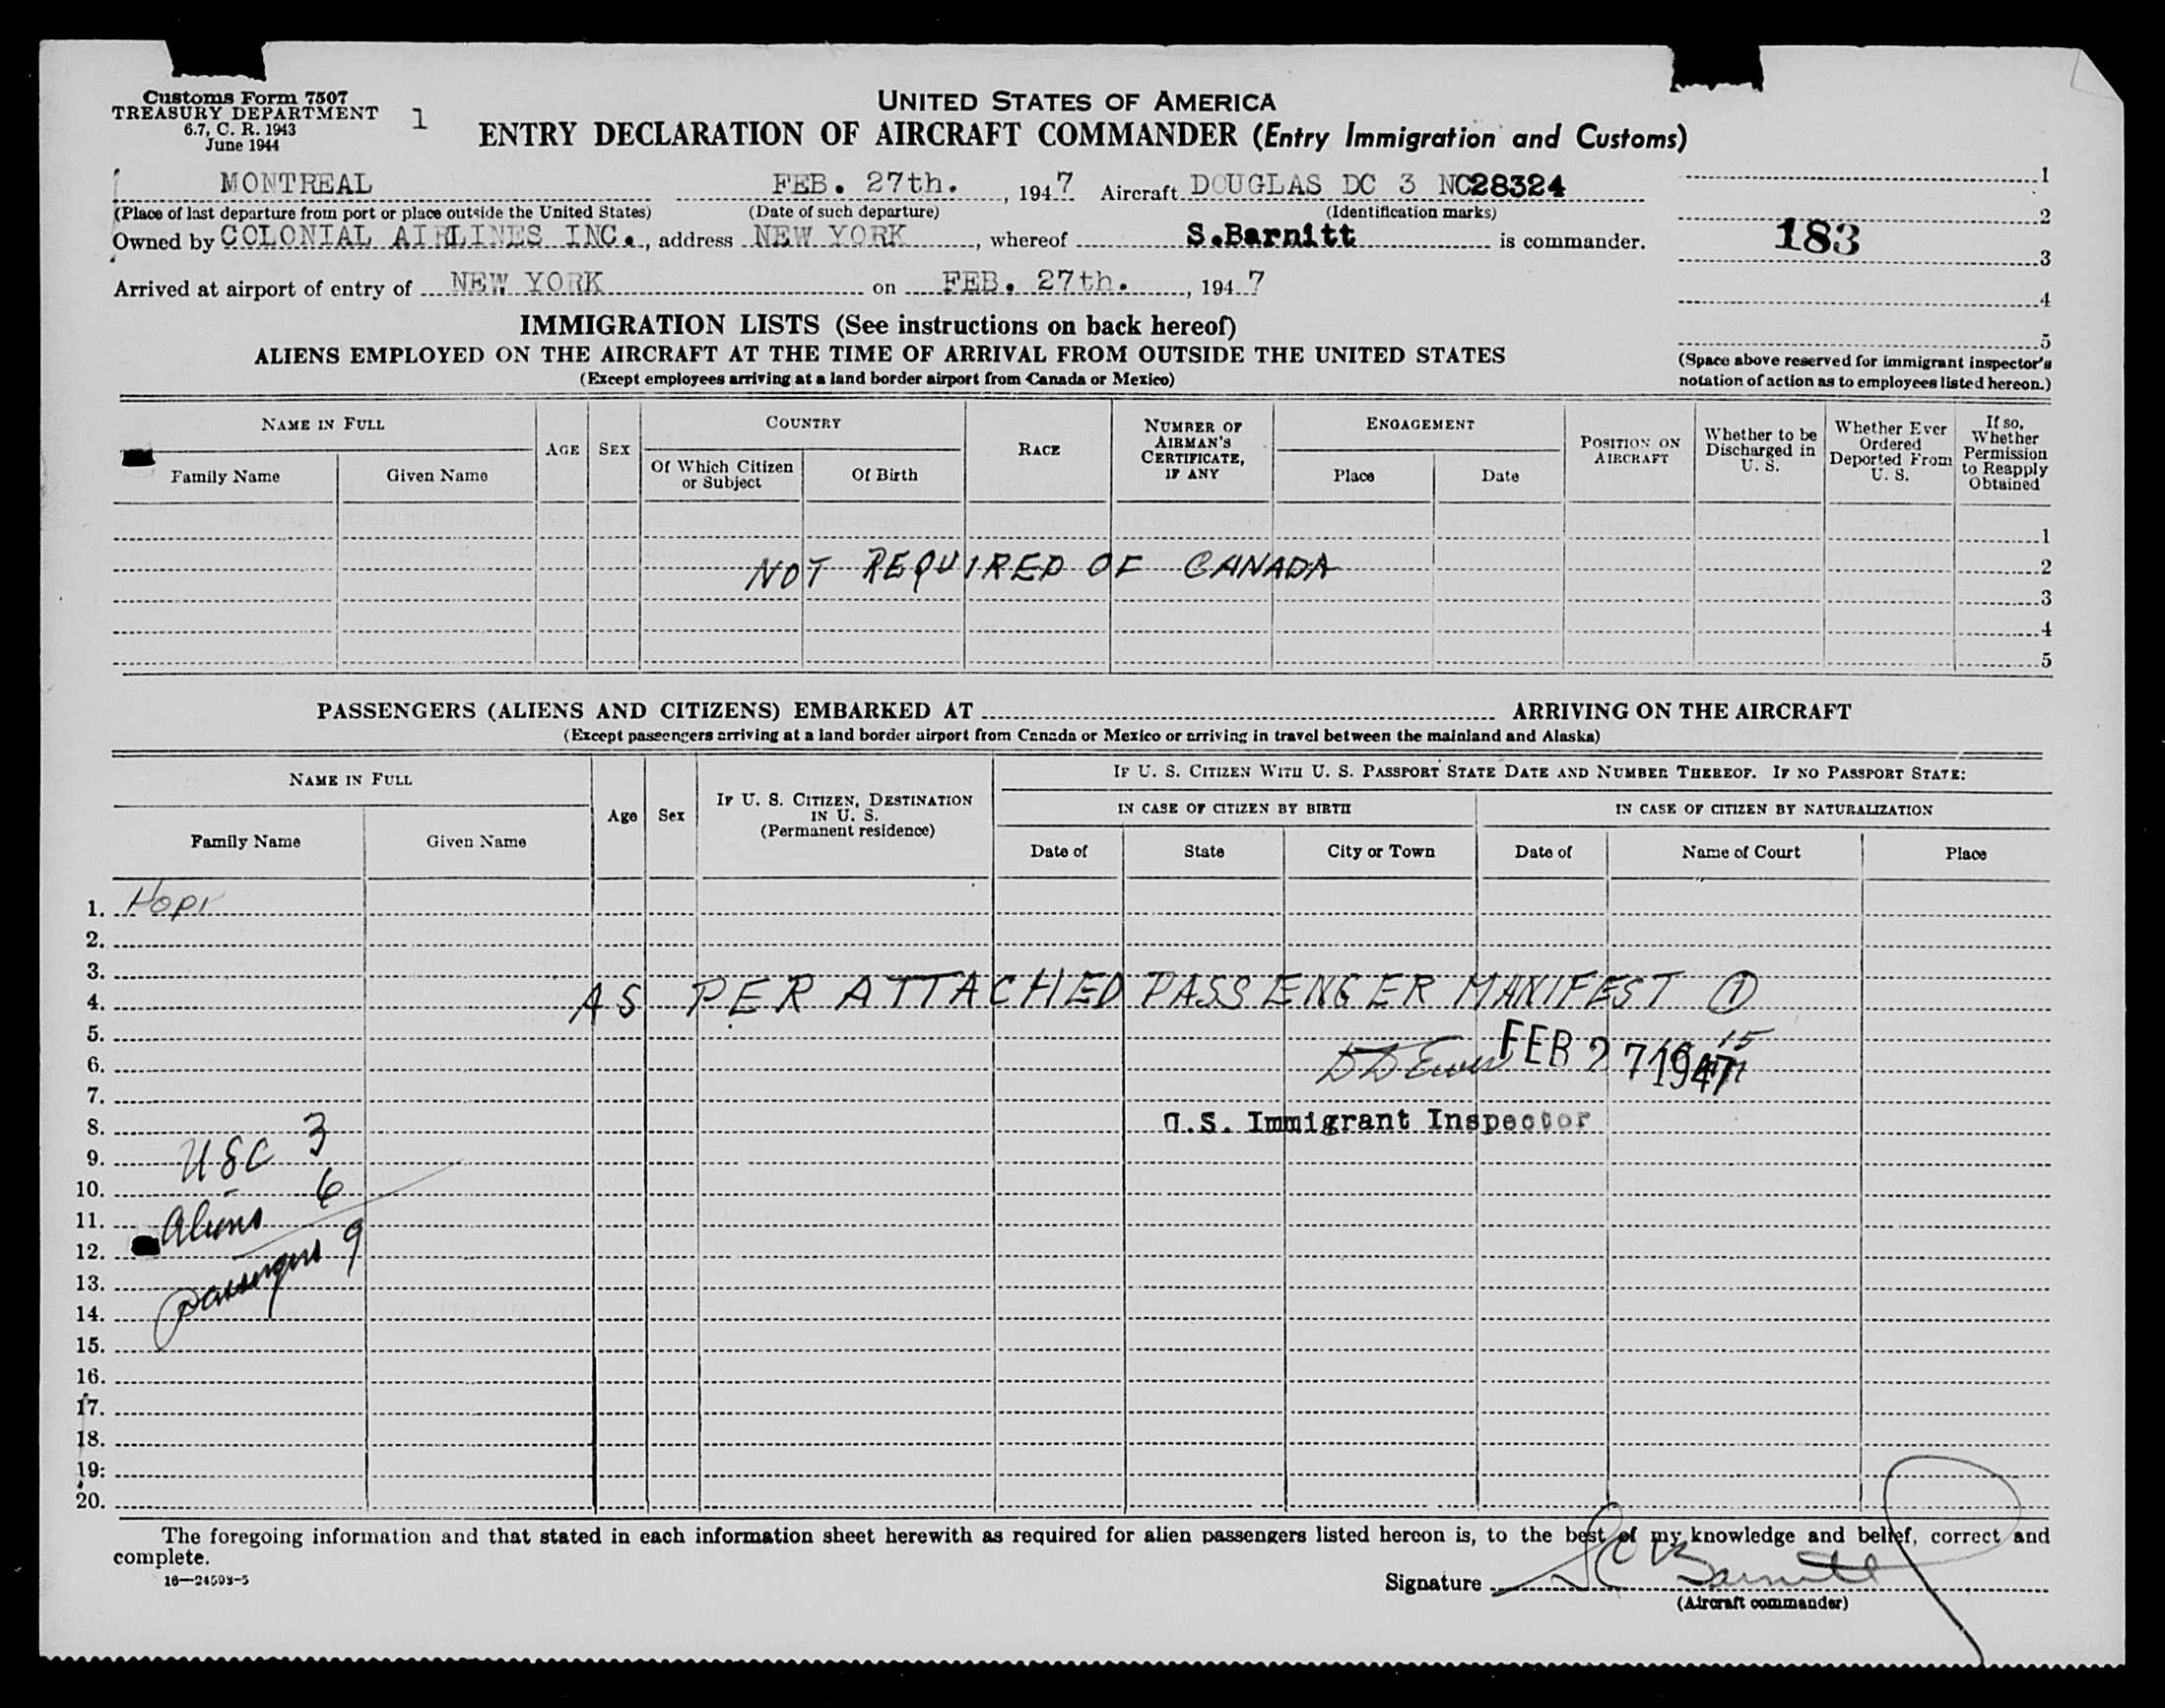 Customs Form 7507
TREASURY DEPARTMENT
6.7, C. R. 1943
June 1944
1
UNITED STATES OF AMERICA
ENTRY DECLARATION OF AIRCRAFT COMMANDER (Entry Immigration and Customs)
MONTREAL FEB. 27th., 1947 Aircraft DOUGLAS DC 3 NC28324
(Place of last departure from port or place outside the United States) (Date of such departure) (Identification marks)
Owned by COLONIAL AIRLINES INC., address NEW YORK, whereof S.Barnitt is commander.
Arrived at airport of entry of NEW YORK on FEB. 27th., 1947
1
2
183
3
4
5
(Space above reserved for immigrant inspector's
notation of action as to employees listed hereon.)
IMMIGRATION LISTS (See instructions on back hereof)
ALIENS EMPLOYED ON THE AIRCRAFT AT THE TIME OF ARRIVAL FROM OUTSIDE THE UNITED STATES
(Except employees arriving at a land border airport from Canada or Mexico)
NAME IN FULL
Family Name Given Name
AGE SEX
COUNTRY
Of Which Citizen
or Subject
Of Birth
RACE
NUMBER OF
AIRMAN'S
CERTIFICATE,
IF ANY
ENGAGEMENT
Place Date
POSITION ON
AIRCRAFT
Whether to be
Discharged in
U. S.
Whether Ever
Ordered
Deported From
U. S.
If so,
Whether
Permission
to Reapply
Obtained
1
NOT REQUIRED OF CANADA 2
3
4
5
PASSENGERS (ALIENS AND CITIZENS) EMBARKED AT ARRIVING ON THE AIRCRAFT
(Except passengers arriving at a land border airport from Canada or Mexico or arriving in travel between the mainland and Alaska)
NAME IN FULL
Family Name Given Name
Age Sex
IF U. S. CITIZEN, DESTINATION
IN U. S.
(Permanent residence)
IF U. S. CITIZEN WITH U. S. PASSPORT STATE DATE AND NUMBER THEREOF. IF NO PASSPORT STATE:
IN CASE OF CITIZEN BY BIRTH IN CASE OF CITIZEN BY NATURALIZATION
Date of State City or Town Date of Name of Court Place
1.
2.
3.
4. AS PER ATTACHED PASSENGER MANIFEST 1
5.
6. FEB 27 1947
7.
8. U.S. Immigrant Inspector
9. USC 3
10. 6
11. Aliens
12. 9
13. passengers
14.
15.
16.
17.
18.
19.
20.
The foregoing information and that stated in each information sheet herewith as required for alien passengers listed hereon is, to the best of my knowledge and belief, correct and
complete.
16—24508-5
Signature S C Barnitt
(Aircraft commander)